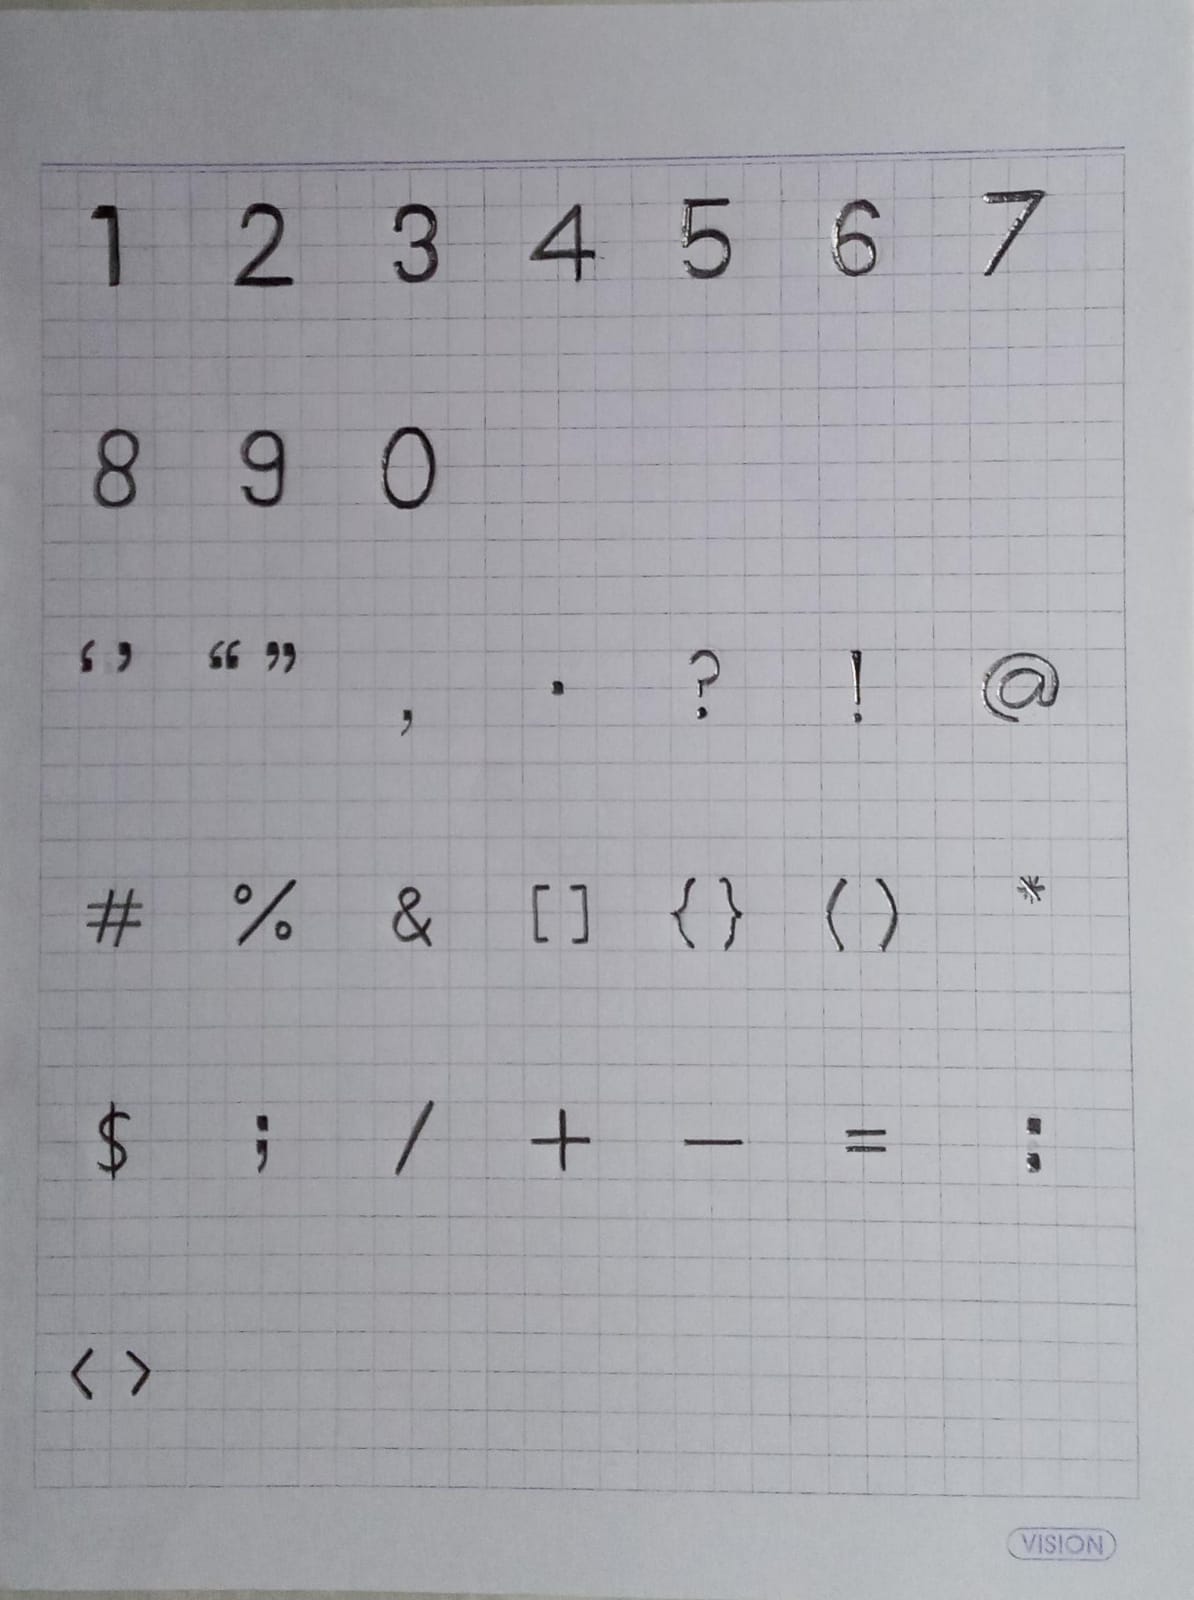 1 2 3 4 5 6 7
8 9 0
‘ ’ “ ” , . ? ! @
# % & [ ] { } ( ) *
$ ; / + - = :
< >
VISION